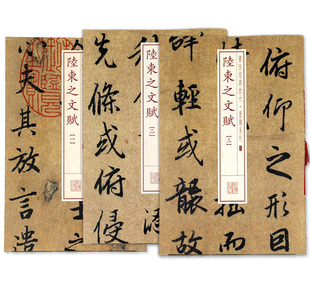 陸柬之文賦
(一)
士之
心夫其放言遣
陸柬之文賦
(二)
先條或俯侵
陸柬之文賦
(三)
俯仰之形因
拙而
辭輕或襲故